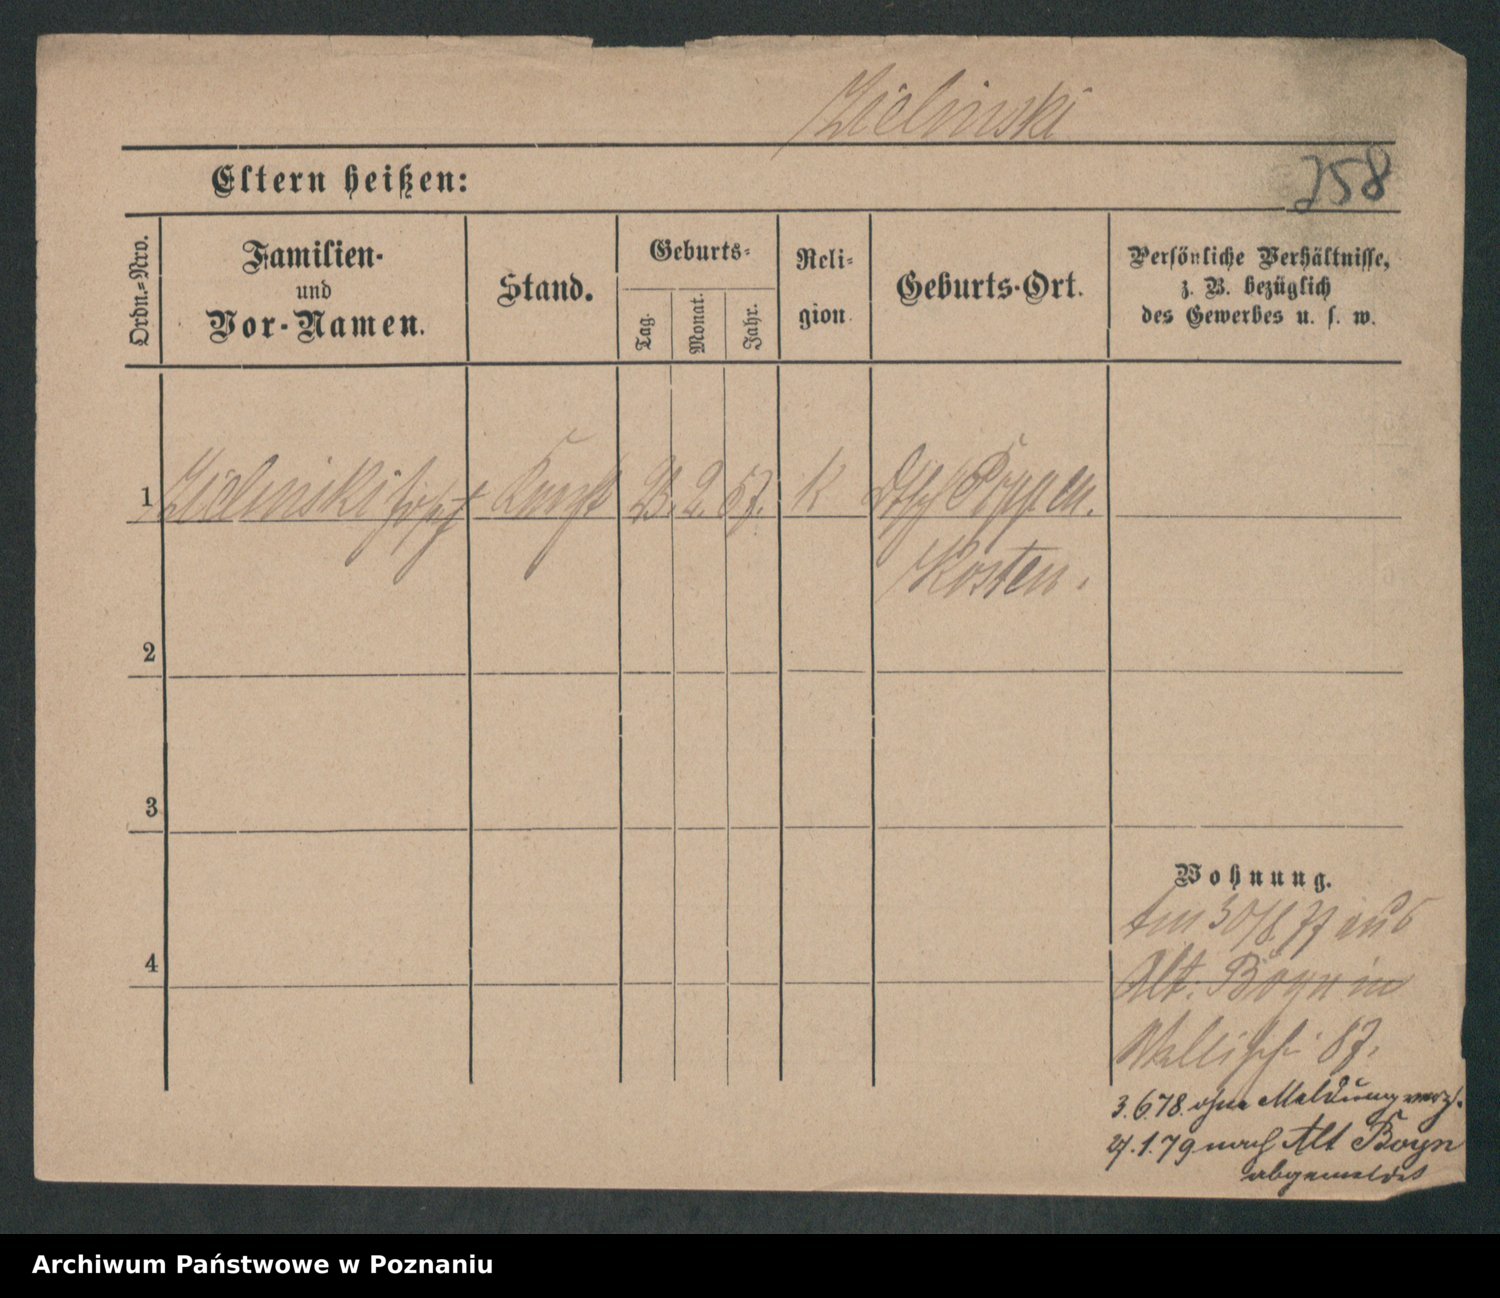 Zielinski
258
Eltern heißen:
Ordn.=Nro.
Familien-
und
Vor-Namen.
Stand.
Geburts-
Tag.
Monat.
Jahr.
Reli-
gion
Geburts-Ort.
Persönliche Verhältnisse,
z. B. bezüglich
des Gewerbes u. s. w.
1 Zielinski Josef Knecht 2. K Dtsch Poppen.
Kosten.
2
3
4
Wohnung.
Am 30/8. 77 aus
Alt. Boyn in
Wallischei 87.
3.6.78. ohne Meldung verz.
27.1.79 nach Alt Boyn
abgemeldet
Archiwum Państwowe w Poznaniu